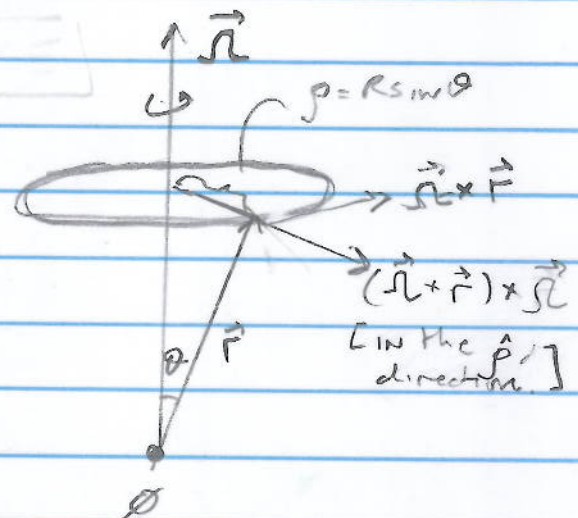 Ω⃗
ρ = R sin θ
Ω⃗ × r⃗
(Ω⃗ × r⃗) × Ω⃗
[IN the ρ̂
direction.]
θ r⃗
O